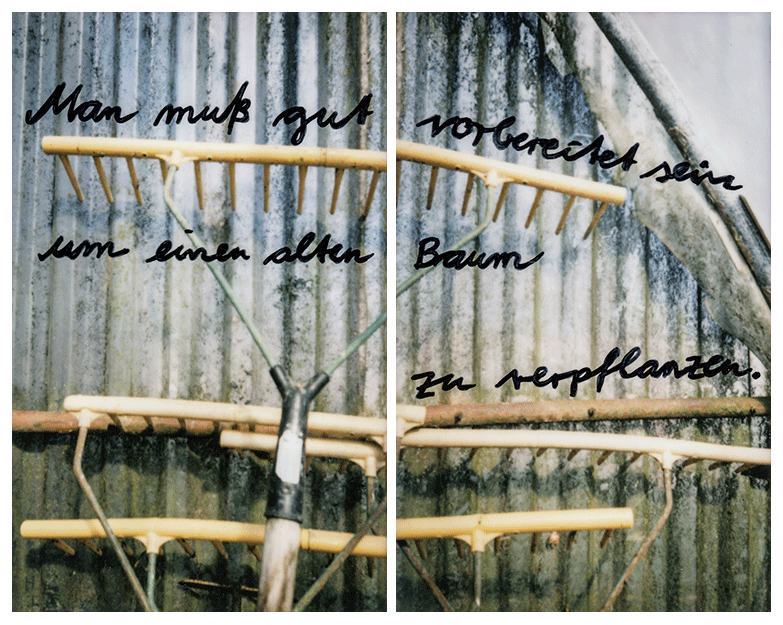 Man muß gut vorbereitet sein
um einen alten Baum
zu verpflanzen.